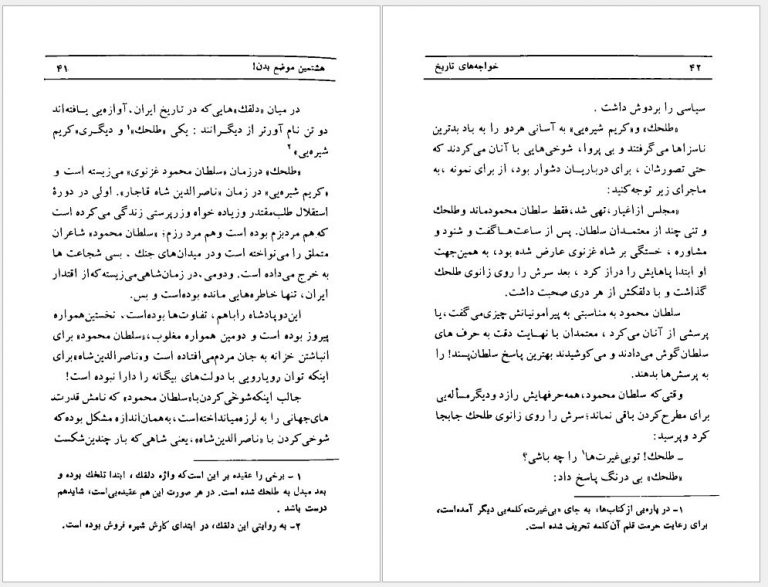 هشتمین موضع بدن!
۴۱
در میان «دلقک»هایی‌که در تاریخ ایران، آوازه‌یی یافته‌اند
دو تن نام آورتر از دیگرانند : یکی «طلحك»۱ و دیگری«کریم
شیره‌یی»۲
«طلحك» درزمان «سلطان محمود غزنوی» می‌زیسته است و
«کریم شیره‌یی» در زمان «ناصرالدین شاه قاجار». اولی در دورهٔ
استقلال طلب‌مقتدر وزیاده خواه وزرپرستی زندگی می‌کرده است
که هم مردبزم بوده است وهم مرد رزم؛ «سلطان محمود» شاعران
متملق را می‌نواخته است ودر میدان‌های جنك . بسی شجاعت ها
به خرج می‌داده است. ودومی.در زمان‌شاهی‌می‌زیسته‌که‌از اقتدار
ایران، تنها خاطره‌هایی مانده بوده‌است و بس.
این‌دوپادشاه راباهم، تفاوت‌ها بوده‌است. نخستین‌همواره
پیروز بوده است و دومین همواره مغلوب،«سلطان محمود» برای
انباشتن خزانه به جان مردم‌می‌افتاده است و«ناصرالدین‌شاه»برای
اینکه توان رویارویی با دولت‌های بیگانه را دارا نبوده است!
جالب اینکه‌شوخی‌کردن‌با«سلطان محمود» که نامش قدرتمند
های‌جهانی را به لرزه‌میانداخته‌است،به‌همان‌اندازه مشکل بوده‌که
شوخی‌کردن با «ناصرالدین‌شاه»،یعنی شاهی‌که بار چندین‌شکست
۱ – برخی را عقیده بر این است‌که واژه دلقك ، ابتدا تلخك بوده و
بعد مبدل به طلحك شده است. در هر صورت این هم عقیده‌یی‌است، شایدهم
درست باشد .
۲– به روایتی این دلقك، در ابتدای کارش شیره فروش بوده است.
خواجه‌های تاریخ
۴۲
سیاسی را بردوش داشت .
«طلحك» و«کریم شیره‌یی» به آسانی هردو را به باد بدترین
ناسزاها می‌گرفتند و بی پروا، شوخی‌هایی با آنان می‌کردند که
حتی تصورشان ، برای درباریان دشوار بود، از برای نمونه ،به
ماجرای زیر توجه‌کنید:
«مجلس ازاغیار،تهی شد،فقط سلطان محمودماند وطلحك
و تنی چند از معتمدان سلطان. پس از ساعت‌هاگفت و شنود و
مشاوره ، خستگی بر شاه غزنوی عارض شده بود، به همین‌جهت
او ابتدا پاهایش را دراز کرد ، بعد سرش را روی زانوی طلحك
گذاشت و با دلقکش از هر دری صحبت داشت.
سلطان محمود به مناسبتی به پیرامونیانش چیزی‌می‌گفت،یا
پرسشی از آنان می‌کرد ، معتمدان با نهایت دقت به حرف های
سلطان‌گوش می‌دادند و می‌کوشیدند بهترین پاسخ سلطان‌پسند! را
به پرسش‌ها بدهند.
وقتی‌که سلطان محمود،همه‌حرفهایش رازد ودیگرمسأله‌یی
برای مطرح‌کردن باقی نماند؛سرش را روی زانوی طلحك جابجا
کرد وپرسید:
ـ طلحك! توبی‌غیرت‌ها۱ را چه باشی؟
«طلحك» بی درنگ پاسخ داد:
۱– در پاره‌یی ازکتاب‌ها، به جای «بی‌غیرت»کلمه‌یی دیگر آمده‌است،
برای رعایت حرمت قلم آن‌کلمه تحریف شده است.